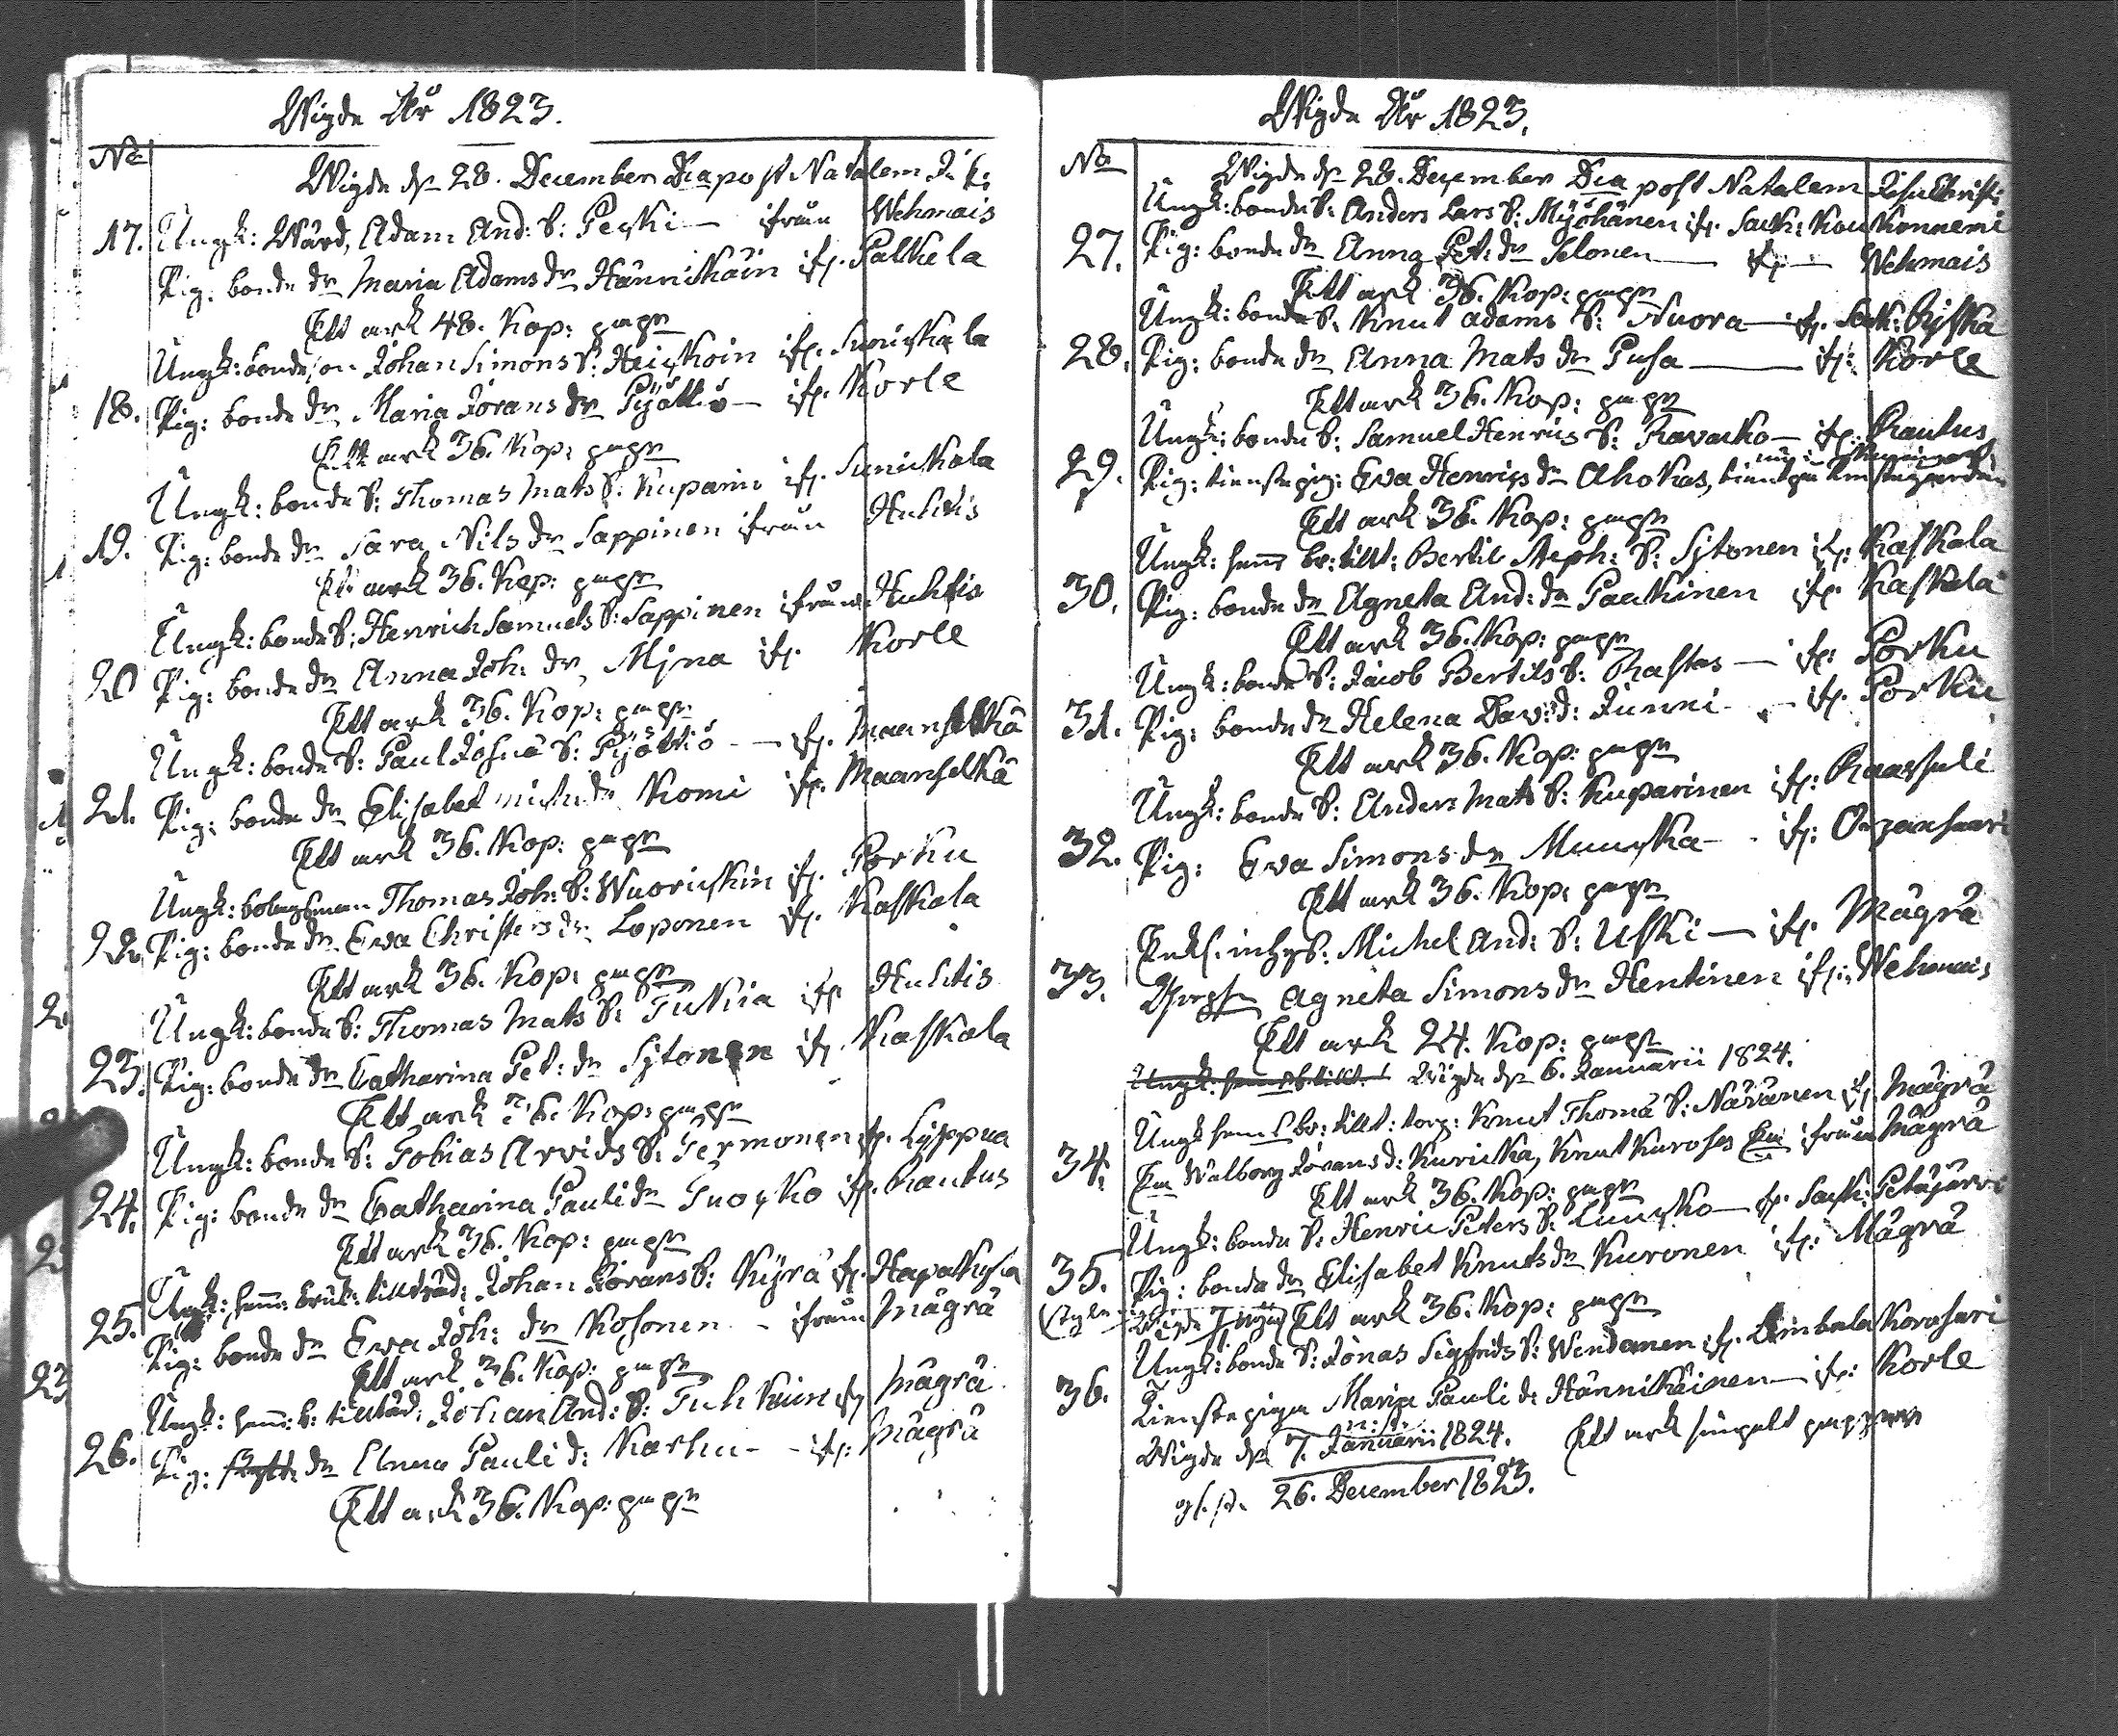 Wigde År 1823.
No
Wigde dn 28. December Dia post Natalem J: C:
17. Ungk: Wärd, Adam And: S: Peski — ifrån Wehmais
Pig. bonde dr Maria Adams dr Hännikäin ifr. Palkela
Ett ark 48. Kop: papr
Ungk: bonde son Johan Simons S: Heiskoin ifr. Suniskala
18. Pig: bonde dr Maria Jörans dr Pyöttiö — ifr. Korle
Ett ark 36. Kop: papr
Ungk: bonde S: Thomas Mats S: Kuparin ifr. Sunickala
19. Pig: bonde dr Sara Nils dr Sappinen ifrån Huhtis
Ett ark 36. Kop: papr
Ungk: bonde S: Henrich Samuels S: Sappinen ifrån Huhtis
20 Pig: bonde dr Anna Joh: dr Mjna ifr. Korle
Ett ark 36. Kop: papr
Ungk: bonde S: Paul Josuæ S: Pyöttiö — ifr. Maanselkä
21. Pig: bonde dr Elisabet Mich: dr Komi ifr. Maanselkä
Ett ark 36. Kop: papr
Ungk: bolagsman Thomas Joh: S: Wuoriskin ifr. Porku
22. Pig: bonde dr Ewa Christers dr Loponen ifr. Kaskala
Ett ark 36. Kop: papr
Ungk: bonde S: Thomas Mats S: Tukia ifr Huhtis
23. Pig: bonde dr Catharina Pet: dr Sjtonen ifr. Kaskala
Ett ark 36. Kop: papr
Ungk: bonde S: Tobias Arvids S: Termonen ifr. Lyppua
24. Pig: bonde dr Catharina Pauli dr Tuosko ifr. Rautus
Ett ark 36. Kop: papr
Ungk: hem: bruk: tillträd: Johan Jörans S: Kyrä ifr. Hapakyla
25. Pig: bonde dr Ewa Joh: dr Kosonen - ifrån Mägrä
Ett ark 36. Kop: papr
Ungk: hem: b: tillträd: Johan And: S: Tuhkuin ifr Mägrä
26. Pig: dr Anna Pauli d: Karhu - - ifr: Mägrä
Ett ark 36. Kop: papr
Wigde År 1823.
No
Wigde dn 28. December Dia post Natalem Jesu Christi
Ungk: bonde S: Anders Lars S: Myöhänen ifr. Sack: Kou Konnemi
27. Pig: bonde dr Anna Pet: dr Jelonen — ifr — Wehmais
Ett ark 36. Kop: papr
Ungk: bonde S: Knut Adams S: Nuora — ifr. Sack: Riska
28. Pig: bonde dr Anna Mats dr Pusa — ifr: Korle
Ett ark 36. Kop: papr
Ungk: bonde S: Samuel Henrics S: Ravasko — ifr. Rautus
29. Pig: tienstepig: Eva Henrics dr Ahokas,
Ett ark 36. Kop: papr
Ungk: hems br: tillt: Bertil Steph: S: Sjtonen ifr: Kaskala
30. Pig: bonde dr Agneta And: dr Paukinen ifr. Kaskala
Ett ark 36. Kop: papr
Ungk: bonde S: Jacob Bertils S: Rastas — ifr: Porku
31. Pig: bonde dr Helena Dav: d: Junni - - ifr. Porku
Ett ark 36. Kop: papr
Ungk: bonde S: Anders Mats S: Kuparinen ifr: Raassuli
32. Pig: Eva Simons dr Muuska - - ifr: Orzansaari
Ett ark 36. Kop: papr
Enkl. inhys. Michel And: S: Uski — ifr. Mägrä
33. Agneta Simons dr Hentinen ifr: Wehmais
Ett ark 24. Kop: papr
Wigde dn 6. Januarii 1824.
Ungk hems br: tillt: torp: Knut Thomæ S: Näränen ifr Mägrä
34. Enk Walborg Jörans d: Kurikka, Knut Kuroses Enk ifrån Mägrä
Ett ark 36. Kop: papr
Ungk: bonde S: Henric Peters S: Luusko — ifr. Sack: Petäjärvi
35. Pig: bonde dr Elisabet Knuts dr Kuronen ifr: Mägrä
Ett ark 36. Kop: papr
Ungk: bonde S: Jonas Sigfrids S: Wendanen ifr. Limbala Korosari
36. Tienstepiga Maria Pauli d: Hännikäinen — ifr: Korle
n: st:
Wigde dn 7. Januarii 1824. Ett ark simpelt papper
gl. st. 26. December 1823.